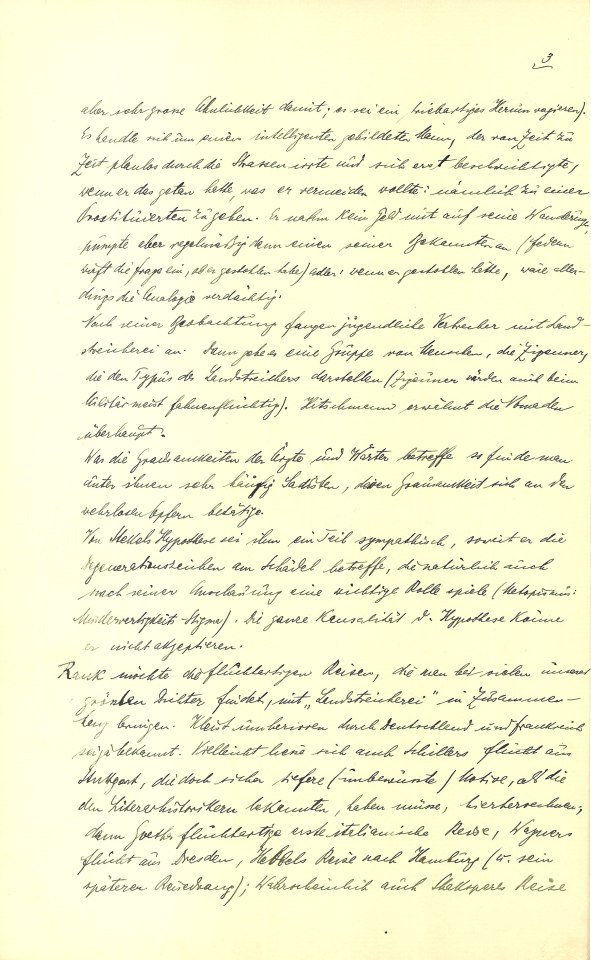 3
aber sehr grosse Ähnlichkeit damit; es sei ein triebartiges Herumvagieren).
Es handle sich um einen intelligenten gebildeten Mann, der von Zeit zu
Zeit planlos durch die Strassen irrte und sich erst beschwichtigte,
wenn er das getan hatte, was er vermeiden wollte: nämlich zu einer
Prostituierten zu gehen. Er nahm kein Geld mit auf seine Wanderung,
pumpte aber regelmässig dann einen seiner Bekannten an (Federn
wirft die Frage ein, ob er gestohlen habe) Adler: wenn er gestohlen hätte, wäre aller-
dings die Analogie verdächtig.
Nach seiner Beobachtung fangen jugendliche Verbrecher mit Land-
streicherei an. Dann gebe es eine Gruppe von Menschen, die Zigeuner,
die den Typus des Landstreichers darstellen (Zigeuner würden auch beim
Militär meist fahnenflüchtig). Hitschmann erwähnt die Nomaden
überhaupt.
Was die Grausamkeiten der Ärzte und Wärter betreffe so finde man
unter ihnen sehr häufig Sadisten, deren Grausamkeit sich an den
wehrlosen Opfern betätige.
Von Stekels Hypothese sei ihm ein Teil sympathisch, soweit er die
Degenerationszeichen am Schädel betreffe, die natürlich auch
nach seiner Anschauung eine wichtige Rolle spiele
Minderwertigkeits Stigma). Die ganze Kausalität d. Hypothese könne
er nicht akzeptieren.
Rank möchte die fluchtartigen Reisen, die man bei vielen unserer
grössten Dichter findet, mit „Landstreicherei" in Zusammen-
hang bringen. Kleist umherirren durch Deutschland und Frankreich
sei ja bekannt. Vielleicht liesse sich auch Schillers Flucht aus
Stuttgart, die doch sicher tiefere (unbewusste) Motive, als die
den Literarhistorikern bekannten, haben müsse, hierherrechnen,
dann Goethes fluchtartige erste italiänische Reise, Wagners
Flucht aus Dresden, Hebbels Reise nach Hamburg (u. sein
späterer Reisedrang); Wahrscheinlich auch Shakespeares Reise